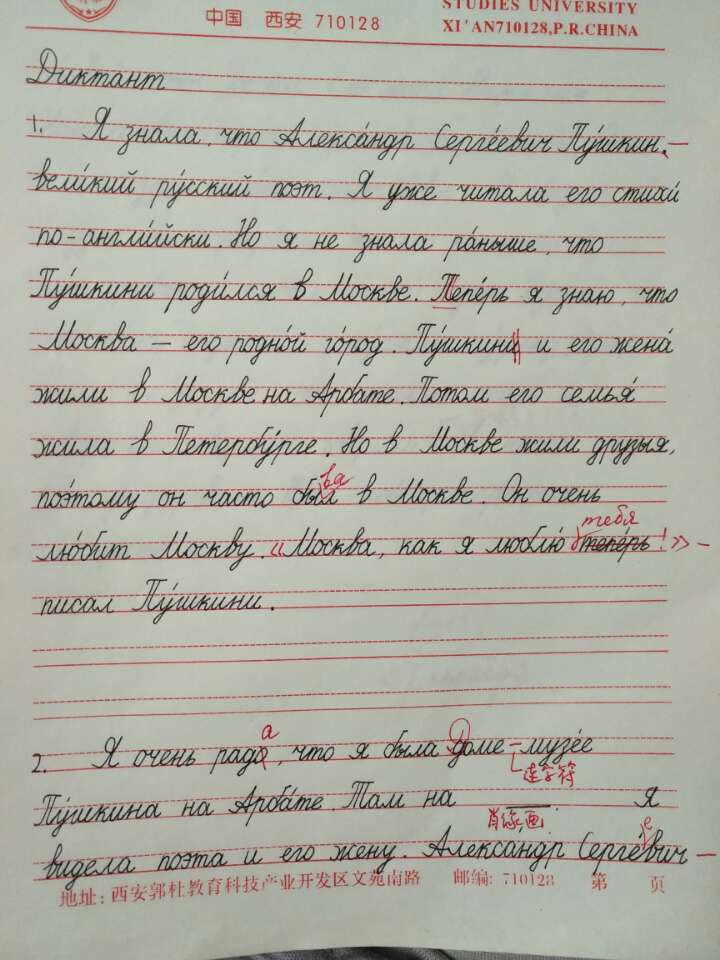 中国 西安 710128
STUDIES UNIVERSITY
XI'AN710128,P.R.CHINA
Диктант
1. Я знала, что Алекса́ндр Серге́евич Пу́шкин, —
вели́кий ру́сский поэт. Я уже читала его стихи́
по-англи́йски. Но я не знала ра́ныше, что
Пу́шкини роди́лся в Москве. Тепе́рь я знаю, что
Москва — его родно́й го́род. Пу́шкини и его жена́
жили в Москве на Арбате. Потом его семья́
жила в Петербу́рге. Но в Москве жили друзыя,
ва
поэ́тому он часто был в Москве. Он очень
тебя
лю́бит Москву. «Москва, как я люблю́ тепе́рь!» —
писал Пу́шкини.
а
2. Я очень радо, что я была Доме-музе́е
连字符
Пу́шкина на Арба́те. Там на ___. я
肖像画
е
видела поэта и его жену. Алекса́ндр Серге́вич —
地址: 西安郭杜教育科技产业开发区文苑南路 邮编: 710128 第 页